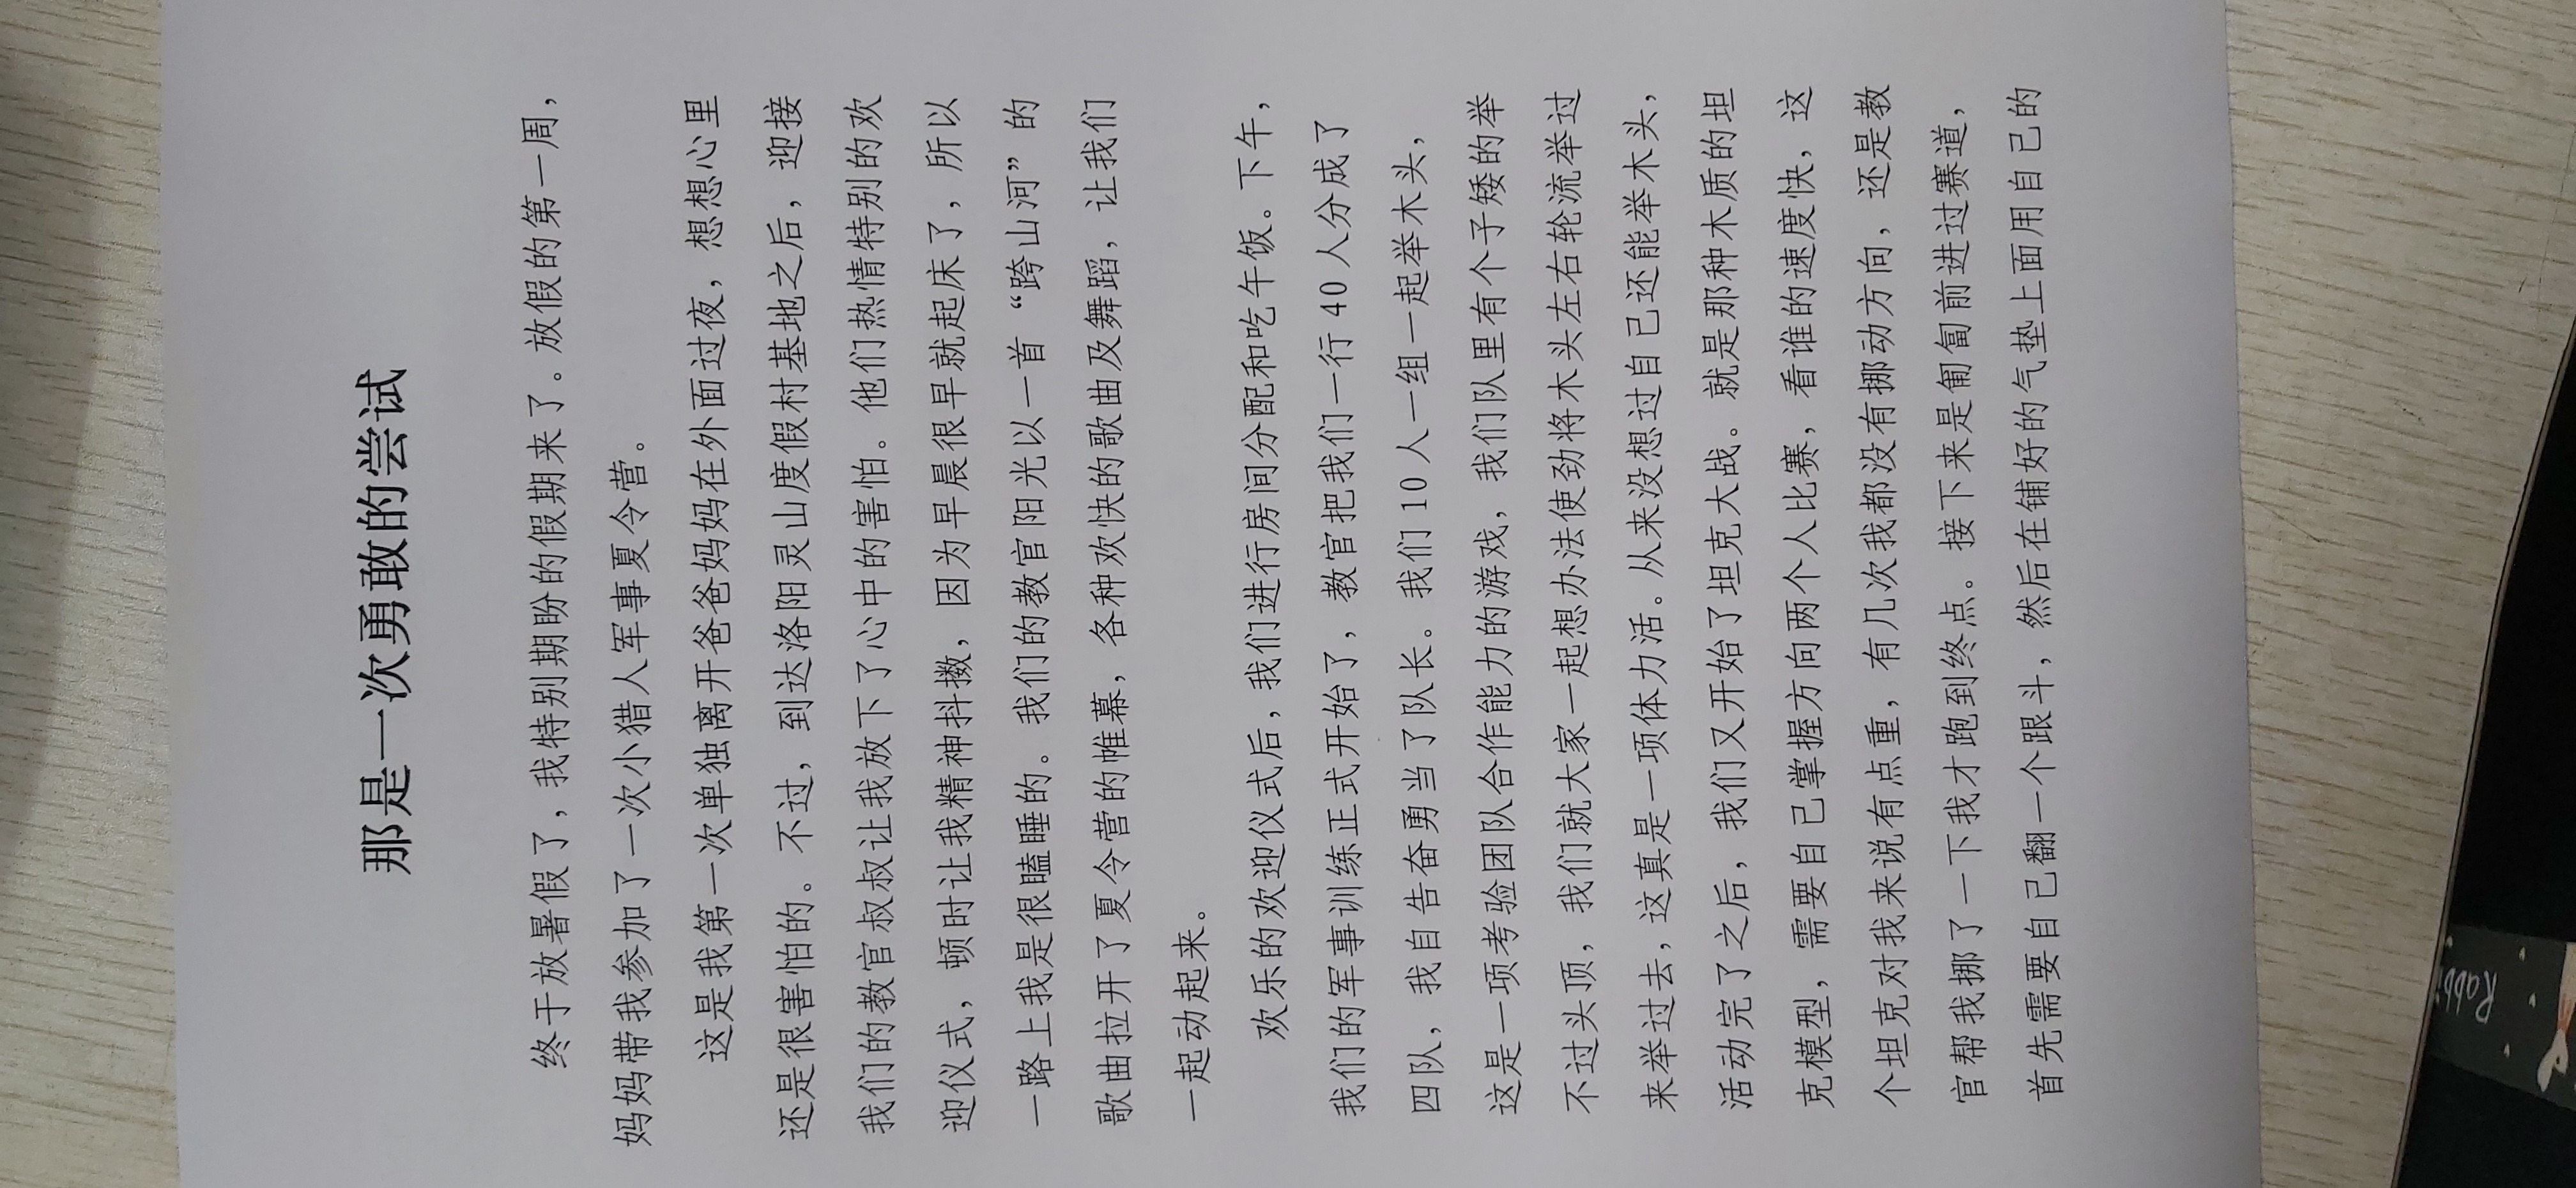 那是一次勇敢的尝试
终于放暑假了，我特别期盼的假期来了。放假的第一周，
妈妈带我参加了一次小猎人军事夏令营。
这是我第一次单独离开爸爸妈妈在外面过夜，想想心里
还是很害怕的。不过，到达洛阳灵山度假村基地之后，迎接
我们的教官叔叔让我放下了心中的害怕。他们热情特别的欢
迎仪式，顿时让我精神抖擞，因为早晨很早就起床了，所以
一路上我是很瞌睡的。我们的教官阳光以一首“跨山河”的
歌曲拉开了夏令营的帷幕，各种欢快的歌曲及舞蹈，让我们
一起动起来。
欢乐的欢迎仪式后，我们进行房间分配和吃午饭。下午，
我们的军事训练正式开始了，教官把我们一行 40 人分成了
四队，我自告奋勇当了队长。我们 10 人一组一起举木头，
这是一项考验团队合作能力的游戏，我们队里有个子矮的举
不过头顶，我们就大家一起想办法使劲将木头左右轮流举过
来举过去，这真是一项体力活。从来没想过自己还能举木头，
活动完了之后，我们又开始了坦克大战。就是那种木质的坦
克模型，需要自己掌握方向两个人比赛，看谁的速度快，这
个坦克对我来说有点重，有几次我都没有挪动方向，还是教
官帮我挪了一下我才跑到终点。接下来是匍匐前进过赛道，
首先需要自己翻一个跟斗，然后在铺好的气垫上面用自己的